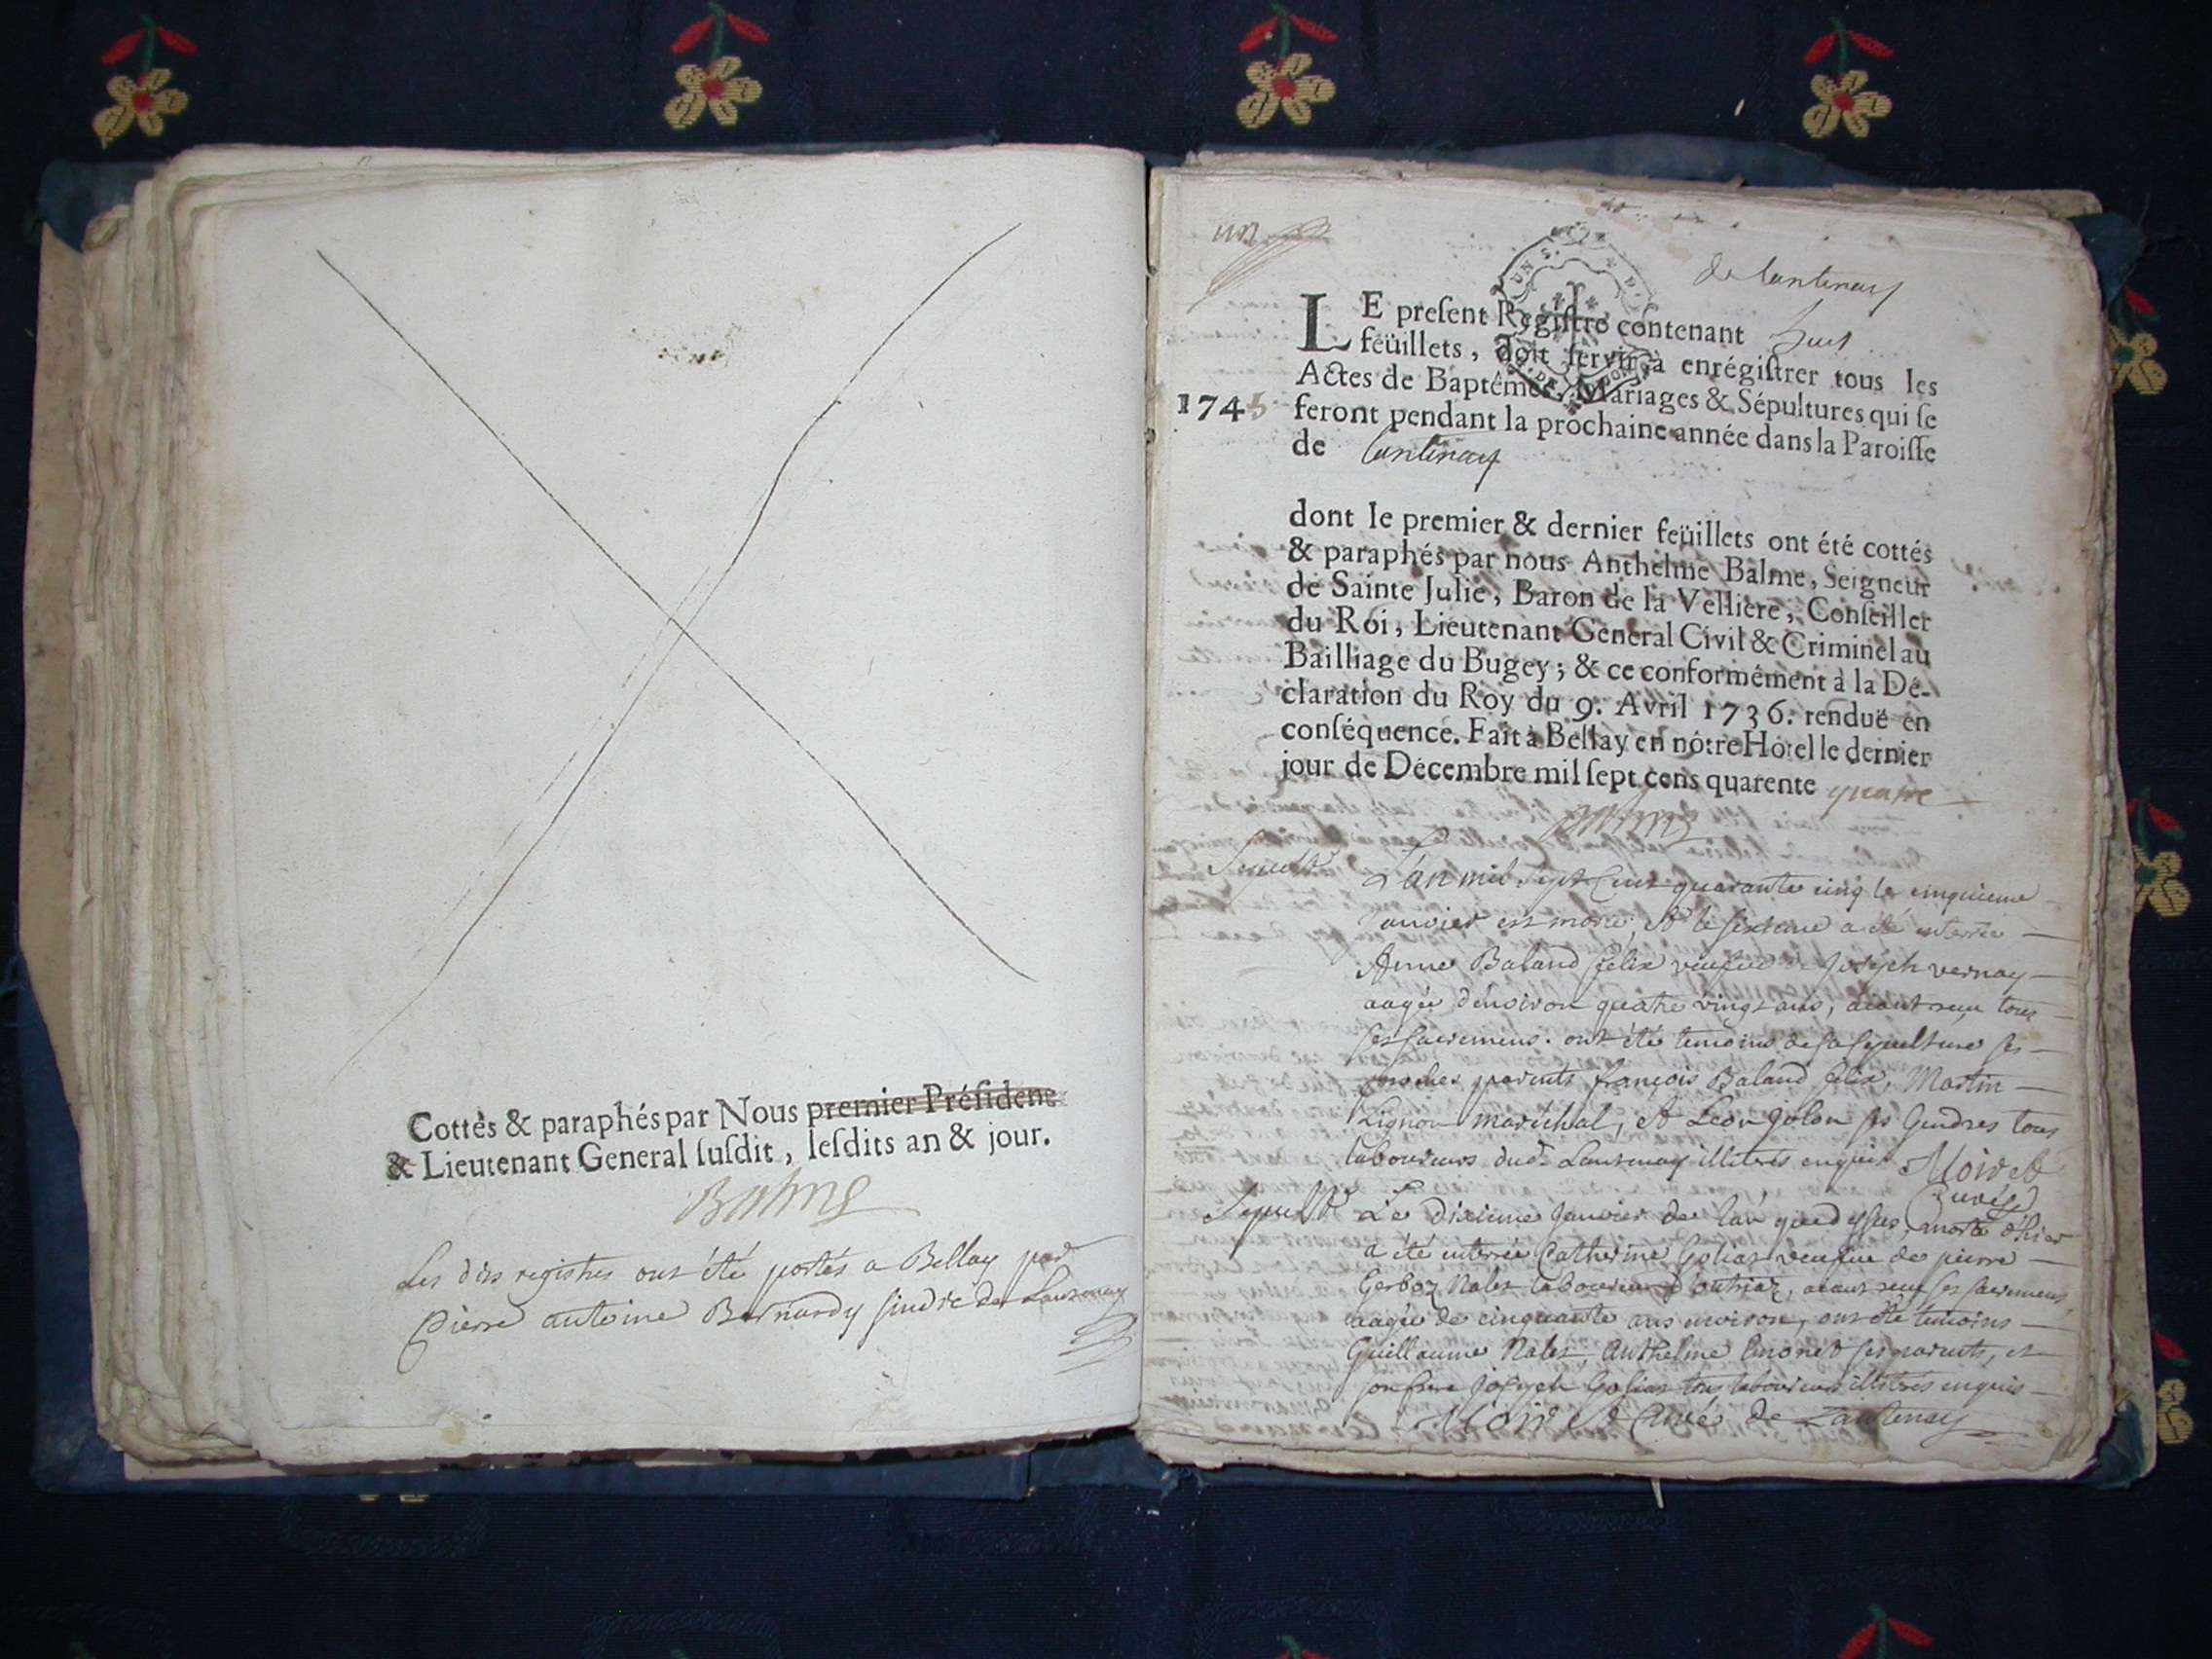 Cottés & paraphés par Nous premier Présidens
& Lieutenant General susdit, lesdits an & jour.
Balme
Les dits registres ont été portés a Bellay par
Pierre antoine Bernardy sindic de Lantenay
de Lantenay
LE present Registre contenant huit
feüillets, doit servir à enrégistrer tous les
Actes de Baptêmes, Mariages & Sépultures qui se
1745 feront pendant la prochaine année dans la Paroisse
de Lantenay
dont le premier & dernier feüillets ont été cottés
& paraphés par nous Anthelme Balme, Seigneur
de Sainte Julie, Baron de la Velliere, Conseiller
du Roi, Lieutenant General Civil & Criminel au
Bailliage du Bugey; & ce conformément à la Dé-
claration du Roy du 9. Avril 1736. renduë en
conséquence. Fait à Bellay en nôtre Hôtel le dernier
jour de Décembre mil sept cens quarente quatre
Balme
Sepult. L'an mil sept cens quarante cinq le cinquieme
janvier est morte, et le sixieme a été enterrée
Anne Baland felix veufve de Joseph vernay
aagée d'environ quatre vingt ans, aiant reçu tous
ses sacremens. ont été temoins de sa sepulture ses
proches parents françois Baland felix, Martin
Lignon maréchal, et Leon Golon ses Gendres tous
laboureurs dud. Lantenay illiterés enquis Moiret
Curé
Sepult. Le dixieme Janvier de l'an que dessus, morte d'hier
a été enterrée Catherine Golias veufve de pierre
Gerboz Nalet laboureur d'outriaz, aiant reçu ses sacremens,
aagée de cinquante ans environ, ont été temoins
Guillaume Nalet, Anthelme ses parents, et
son frere Joseph Golias tous laboureurs illiterés enquis
Moiret Curé de Lantenay